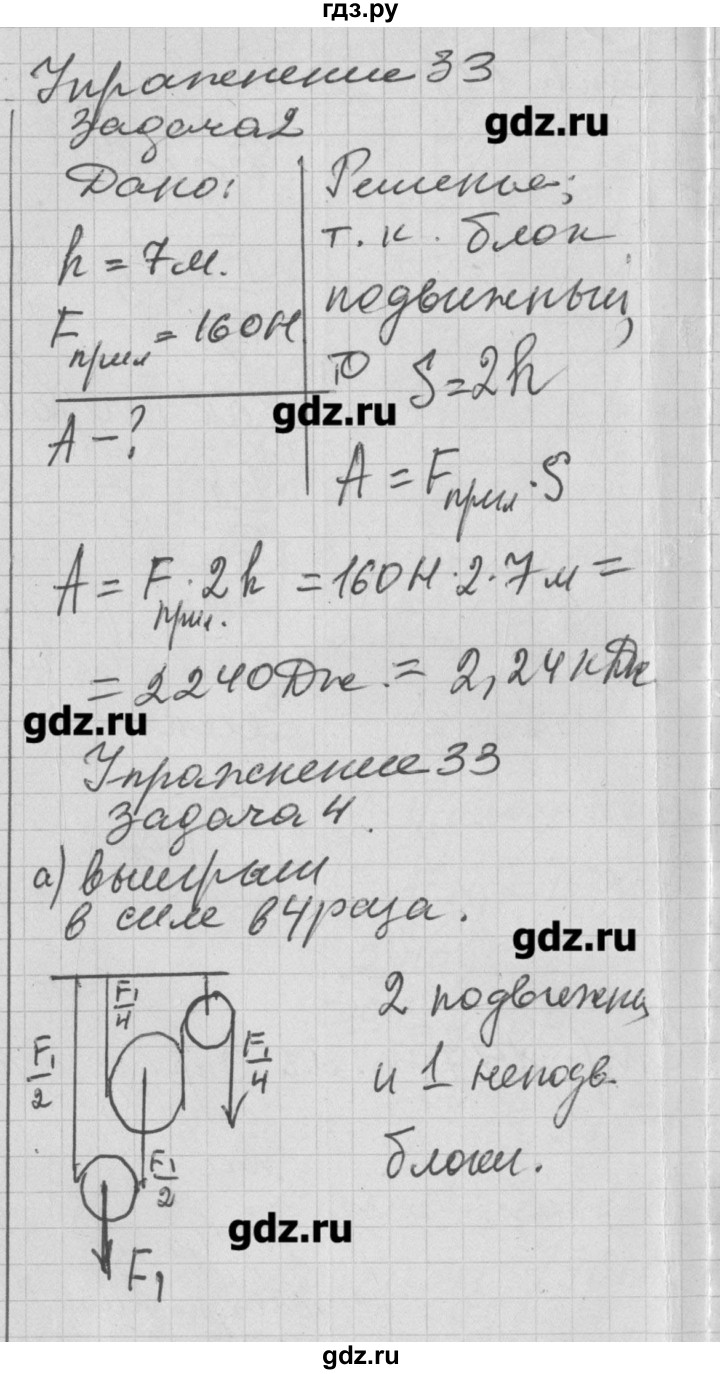 гдз.ру
Упражнение 33
gdz.ru
Задача 2
Дано:
h = 7 м.
Fприл = 160 Н
A – ?
Решенье;
т. к. блок
подвижный,
то S = 2h
gdz.ru
A = Fприл · S
A = Fприл. · 2h = 160 Н · 2 · 7 м =
= 2240 Дж. = 2,24 кДж
gdz.ru
Упражнение 33
Задача 4.
а) выигрыш
в силе в 4 раза.
gdz.ru
F1/2
F1/4
F1/4
F1/2
F1
2 подвижн
и 1 неподв.
блоки.
gdz.ru
gdz.ru